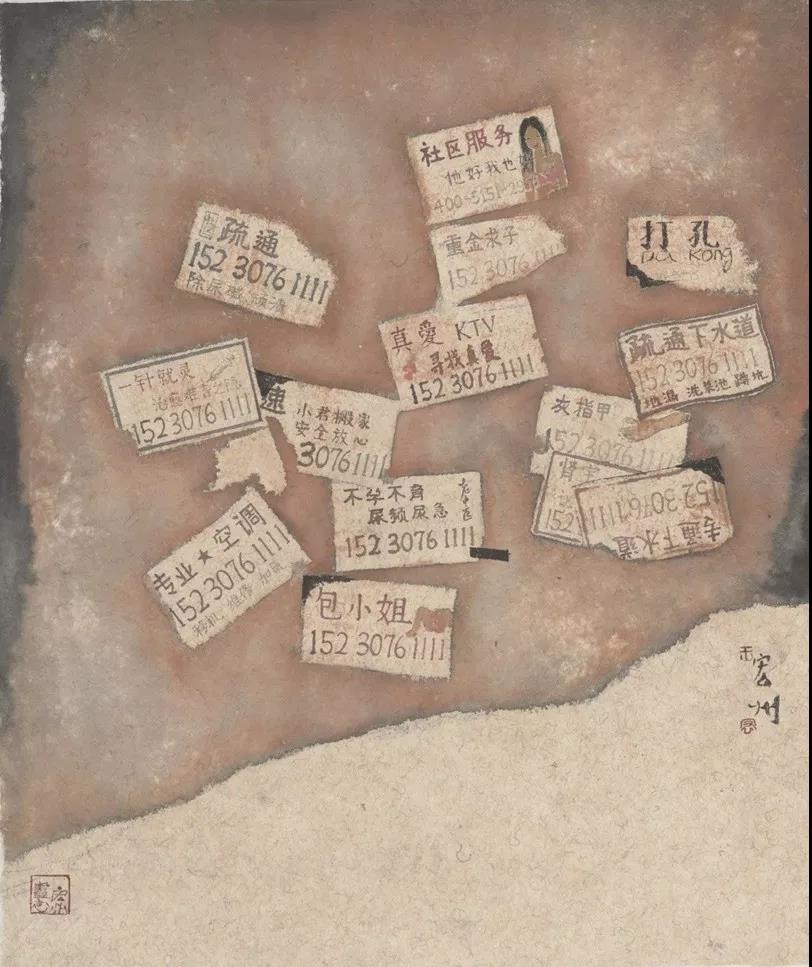 社区服务
他好我也
400-5151-29
重金求子
152 3076 1111
打孔
Da Kong
疏通
152 3076 1111
除尿碱
真愛 KTV
寻找真愛
152 3076 1111
疏通下水道
152 3076 1111
地漏 洗菜池 蹲坑
一针就灵
治愈
152 3076 1111
速
小君搬家
安全放心
3076 1111
灰指甲
152 3076 1111
肾
152
专通下水道
152 3076 1111
不孕不育
尿频尿急
老中医
152 3076 1111
专业★空调
152 3076 1111
移机 维修 加氟
包小姐
152 3076 1111
宏州